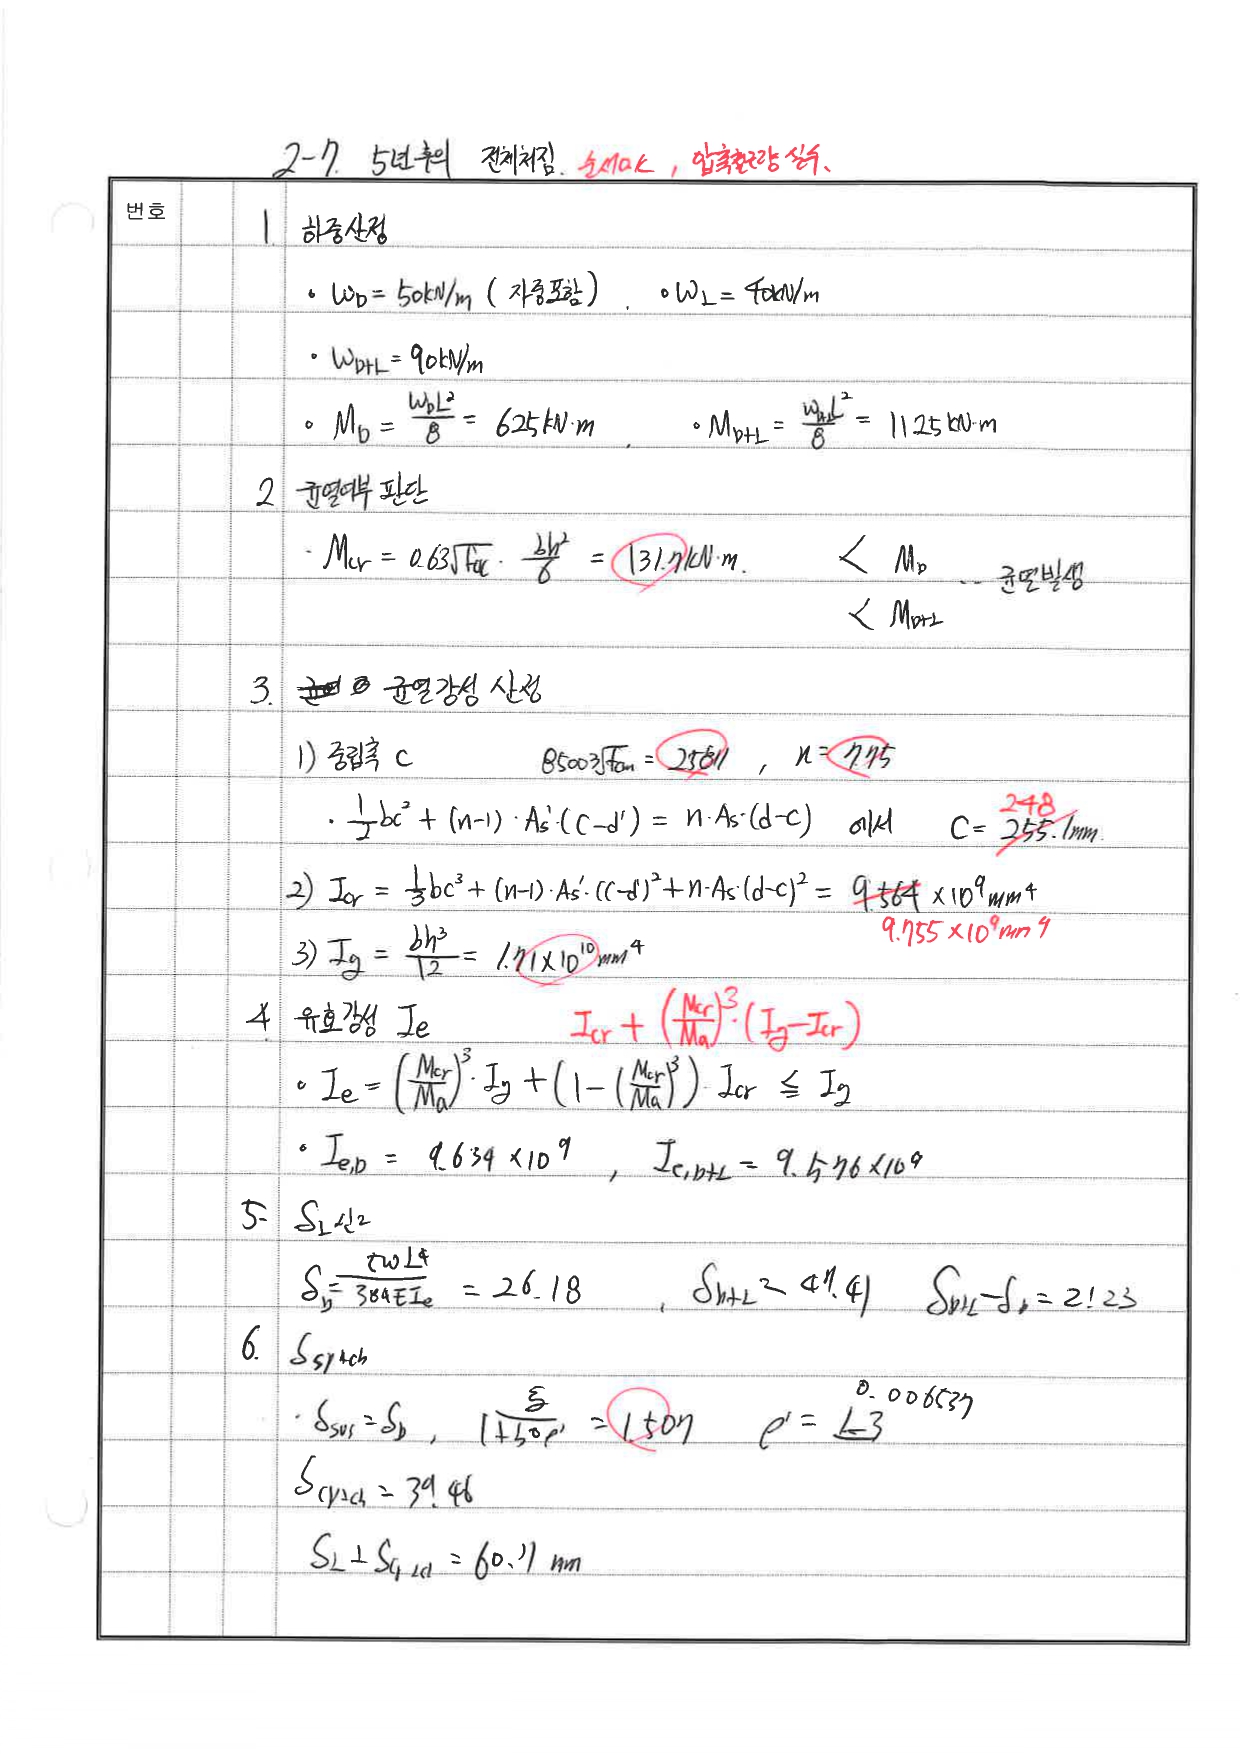 2-7. 5년후의 전체처짐. 순서OK, 압축철근량 실수.
번호
1 하중산정
• W_D = 50kN/m (자중포함) , • W_L = 40kN/m
• W_D+L = 90kN/m
• M_D = W_D L²/8 = 625kN·m , • M_D+L = W_D+L L²/8 = 1125kN·m
2 균열여부 판단
· Mcr = 0.63√fck · bh²/6 = 131.7kN·m. < M_D
∴ 균열발생
< M_D+L
3. 균열강성 산정
1) 중립축 C 8500³√fcu = 25811 , n = 7.75
248
· ½bc² + (n-1)·As'·(c-d') = n·As·(d-c) 에서 C = 255.1mm.
2) Icr = ⅓bc³ + (n-1)·As'·(c-d')² + n·As·(d-c)² = 9.564 × 10⁹mm⁴
9.755 × 10⁹mm⁴
3) Ig = bh³/12 = 1.71 × 10¹⁰mm⁴
4 유효강성 Ie Icr + (Mcr/Ma)³·(Ig-Icr)
• Ie = (Mcr/Ma)³·Ig + (1-(Mcr/Ma)³)·Icr ≦ Ig
• Ie,D = 9.634 × 10⁹ , Ie,D+L = 9.576 × 10⁹
5- δ_L 산정
δ_D = 5wL⁴/384EIe = 26.18 , δ_D+L = 47.41 δ_D+L - δ_D = 21.23
6. δ_sh+cp
0.006537
· δsus = δ_D , ξ/1+50ρ' = 1.507 ρ' =
δ_cp+sh = 39.46
δ_L + δ_cp+sh = 60.71 mm